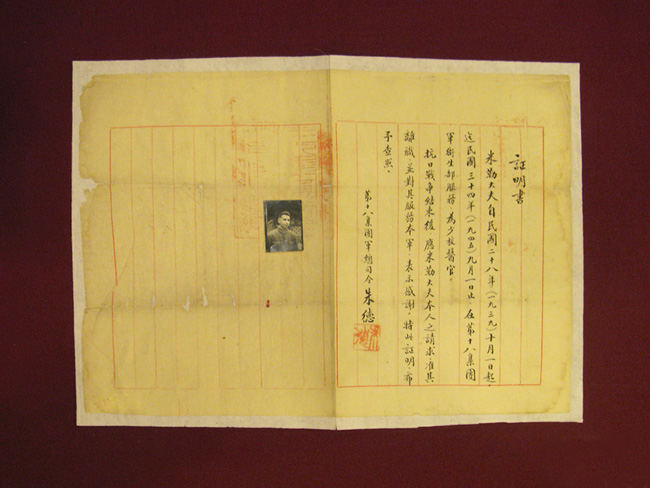 証明書
米勒大夫自民國二十八年(一九三九)十月一日起,
迄民國三十四年(一九四五)九月一日止,在第十八集團
軍衛生部服務,為少校醫官。
抗日戰爭結束後,應米勒大夫本人之請求,准其
離職,並對其服務本軍,表示感謝,特此証明,希
予查照。
第十八集團軍總司令 朱德